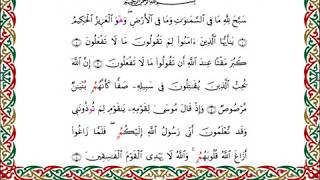 بسم الله الرحمن الرحيم
سَبَّحَ لِلَّهِ مَا فِي السَّمَٰوَٰتِ وَمَا فِي الْأَرْضِ وَهُوَ الْعَزِيزُ الْحَكِيمُ
يَٰأَيُّهَا الَّذِينَ ءَامَنُوا لِمَ تَقُولُونَ مَا لَا تَفْعَلُونَ
كَبُرَ مَقْتًا عِندَ اللَّهِ أَن تَقُولُوا مَا لَا تَفْعَلُونَ إِنَّ اللَّهَ
يُحِبُّ الَّذِينَ يُقَٰتِلُونَ فِي سَبِيلِهِ صَفًّا كَأَنَّهُم بُنْيَٰنٌ
مَّرْصُوصٌ وَإِذْ قَالَ مُوسَىٰ لِقَوْمِهِ يَٰقَوْمِ لِمَ تُؤْذُونَنِي
وَقَد تَّعْلَمُونَ أَنِّي رَسُولُ اللَّهِ إِلَيْكُمْ فَلَمَّا زَاغُوا
أَزَاغَ اللَّهُ قُلُوبَهُمْ وَاللَّهُ لَا يَهْدِي الْقَوْمَ الْفَٰسِقِينَ